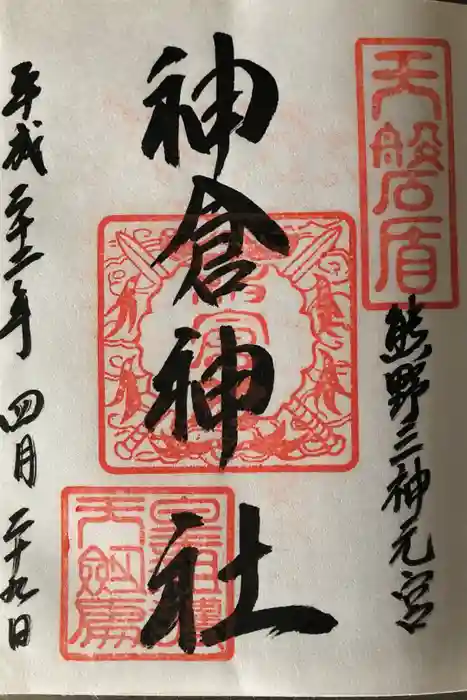 天磐盾
熊野三神元宮
神倉神社
平成二十二年 四月 二十九日